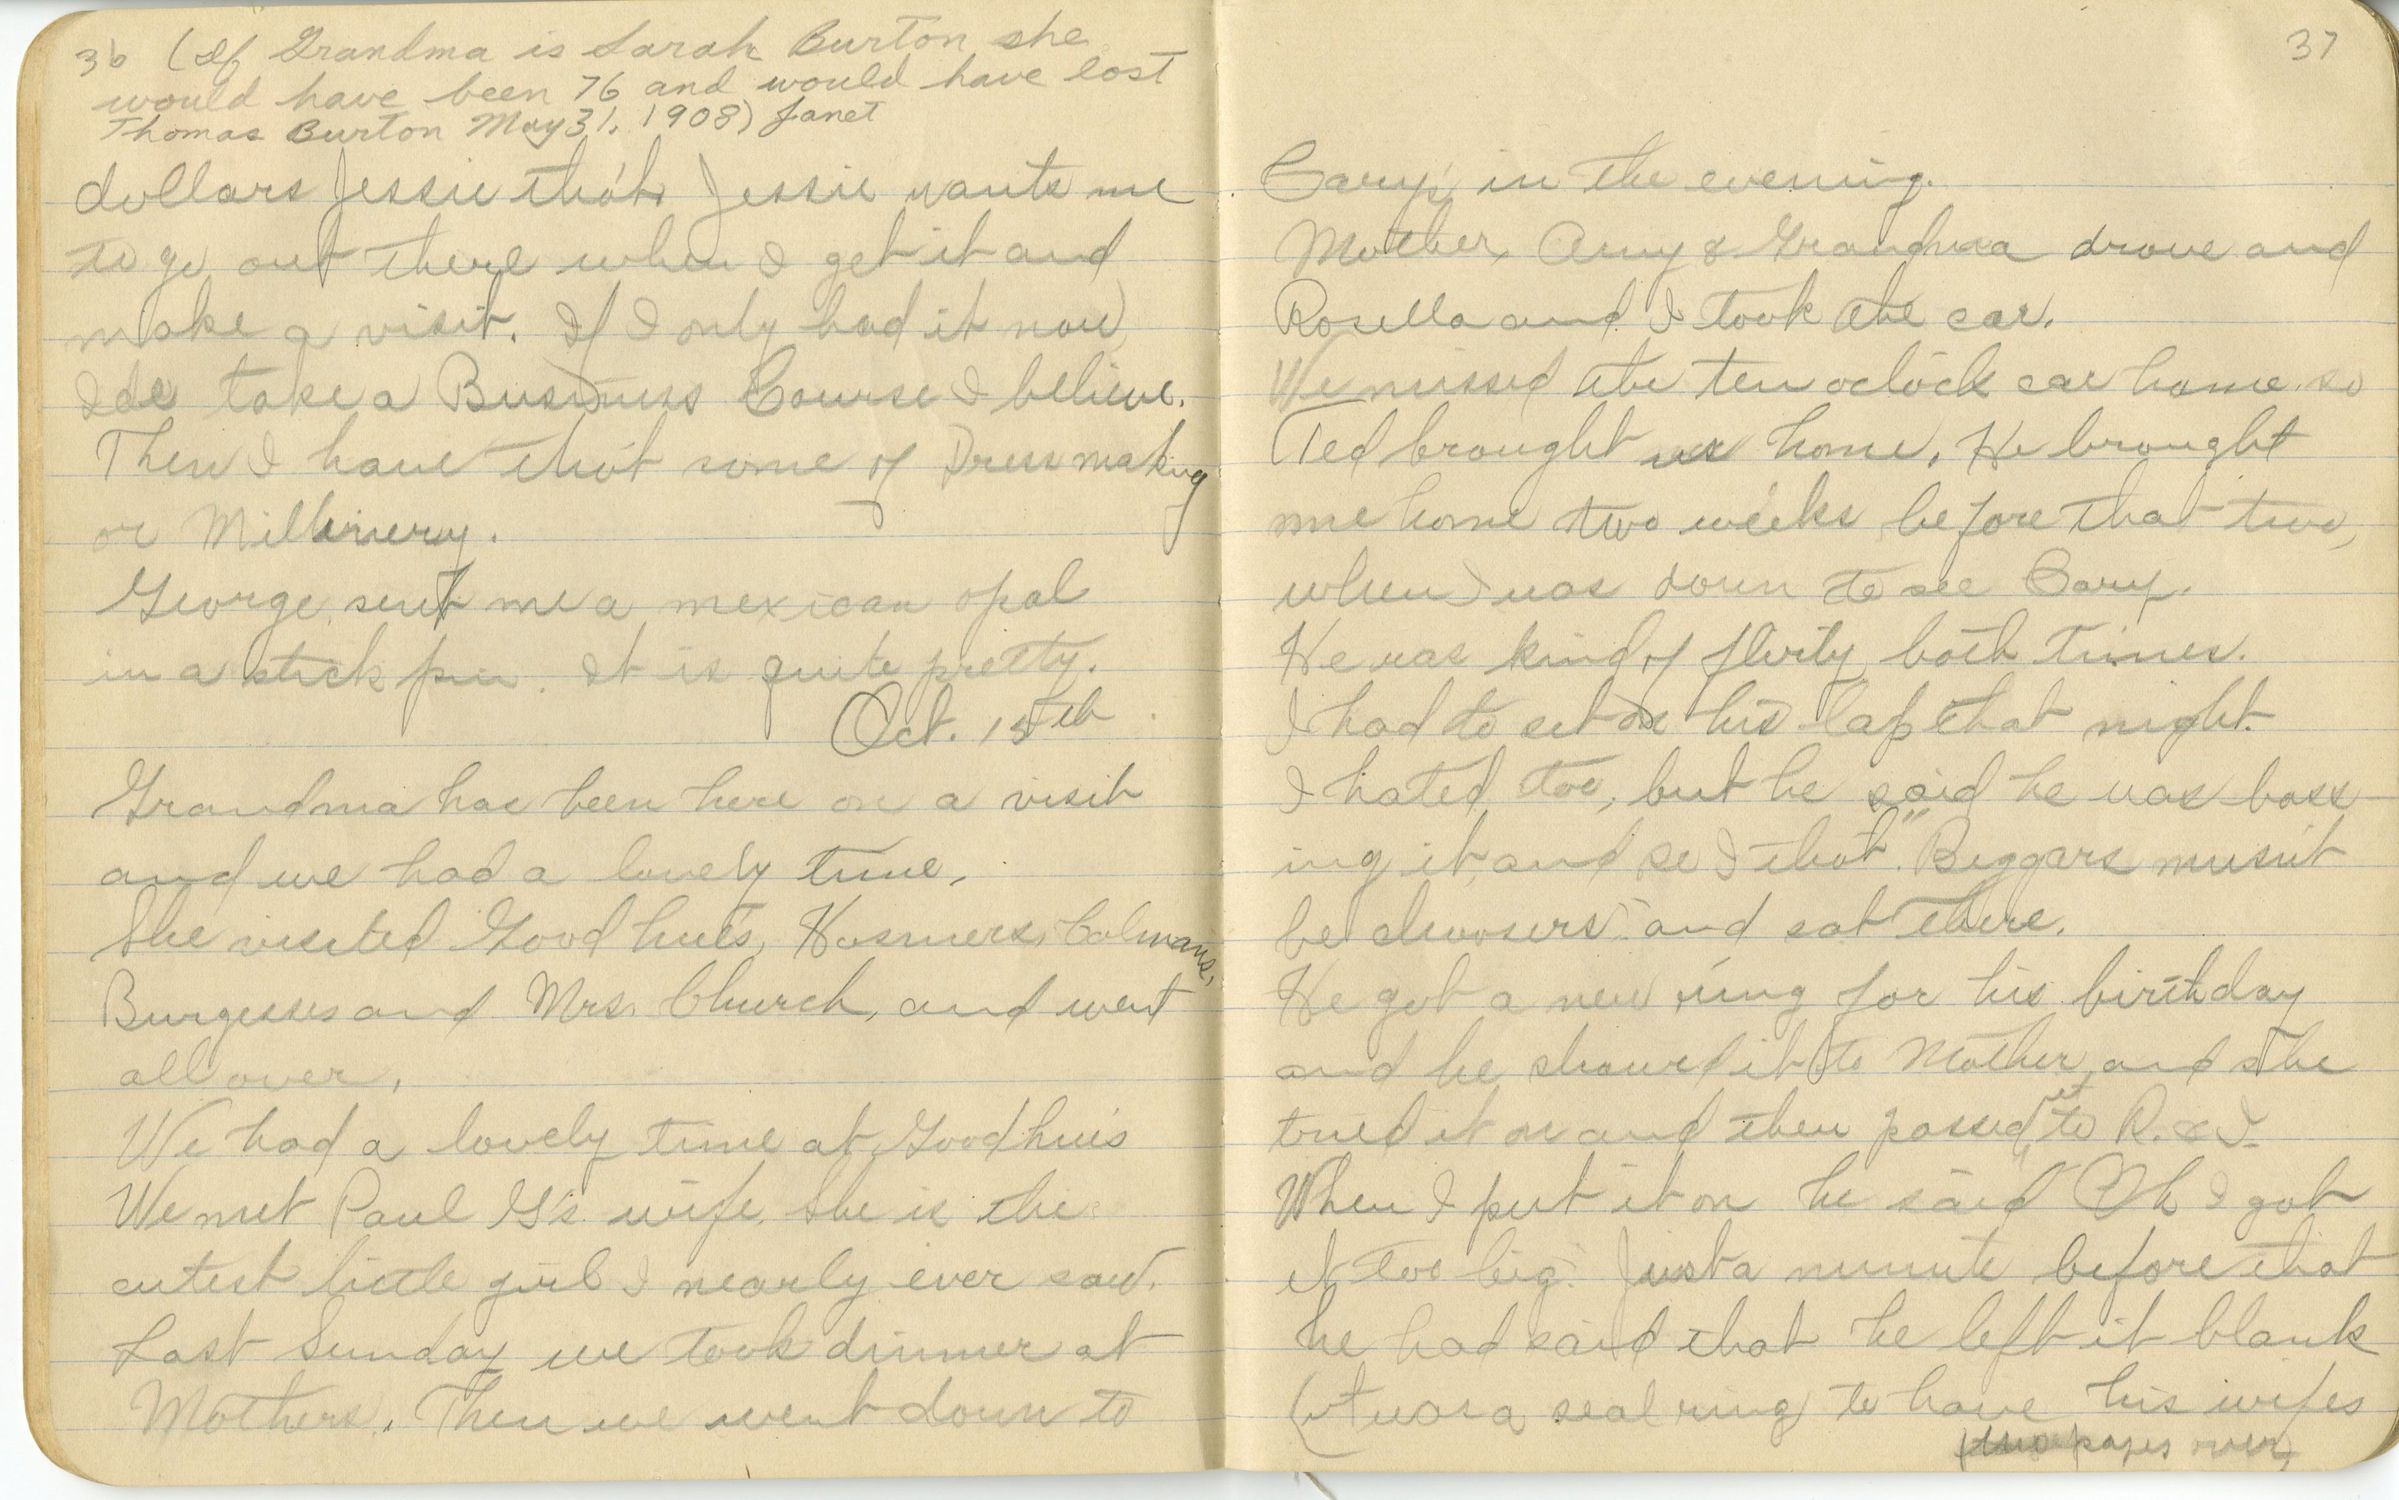 36 (If Grandma is Sarah Burton she
would have been 76 and would have lost
Thomas Burton May 31, 1908) Janet
dollars Jessie tho't Jessie wants me
to go out there when I get it and
make a visit. If I only had it now
I de take a Business Course I believe.
Then I have tho't some of Dressmaking
or Millinery.
George sent me a mexican opal
in a stick pin. It is quite pretty.
Oct. 15th
Grandma has been here on a visit
and we had a lovely time.
She visited Goodhue's, Hosmers, Colmans,
Burgesses and Mrs. Church, and went
all over.
We had a lovely time at Goodhue's
We met Paul G's wife. She is the
cutest little girl I nearly ever saw.
Last Sunday we took dinner at
Mothers. Then we went down to
37
Cary's in the evening.
Mother, Amy & Grandma drove and
Rosella and I took the car.
We missed the ten oclock car home so
Ted brought us home. He brought
me home two weeks before that two,
when I was down to see Cary.
He was kind of flirty both times.
I had to set on his lap that night.
I hated too, but he said he was boss
ing it and so I tho't "Beggars musn't
be choosers" and sat there.
He got a new ring for his birthday
and he showed it to Mother and she
tried it on and then passed it to R. & I.
When I put it on he said Oh I got
it too big. Just a minute before that
he had said that he left it blank
(it was a seal ring) to have his wifes
(two pages over)